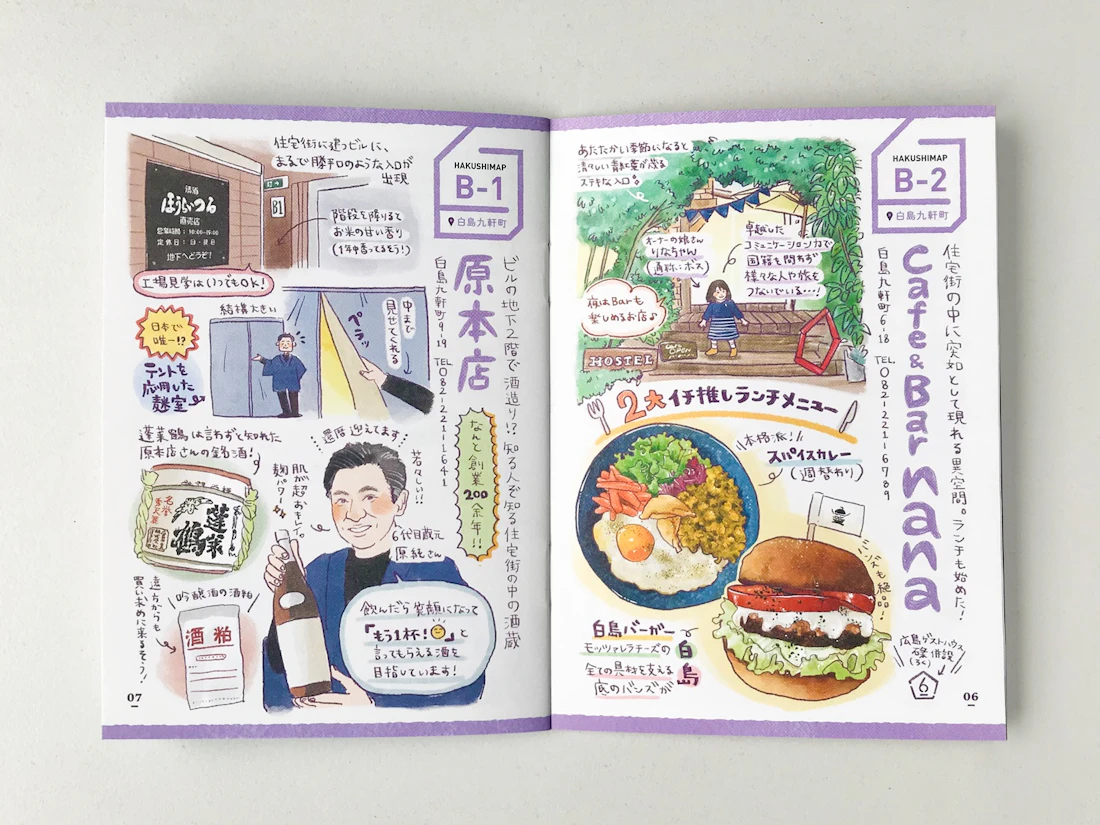 あたたかい季節になると
清々しい青紅葉が茂る
ステキな入口。
HAKUSHIMAP
B-2
白島九軒町
住宅街の中に突如として現れる異空間。ランチも始めた!
Cafe & Bar nana
白島九軒町6-18 TEL 082-221-6789
オーナーの娘さん
りなちゃん
(通称:ボス)
卓越した
コミュニケーション力で
国籍を問わず
様々な人や旅を
つないでいる…!
夜はBarも
楽しめるお店♪
HOSTEL
2大イチ推しランチメニュー
本格派!
スパイスカレー
(週替わり)
バンズも絶品
白島バーガー
モッツァレラチーズの白島
全ての具材を支える
底のバンズが
広島ゲストハウス
碌 併設
(ろく)
6
06
住宅街に建つビルに、
まるで勝手口のような入口が
出現
HAKUSHIMAP
B-1
白島九軒町
ビルの地下2階で酒造り!? 知る人ぞ知る住宅街の中の酒蔵
原本店
白島九軒町9-19 TEL 082-221-1641
なんと創業200余年!!
清酒
ほうらいつる
直売店
営業時間:10:00-19:00
定休日:日・祝日
地下へどうぞ!
B1
階段を降りると
お米の甘い香り
(1年中香ってるそう!)
工場見学はいつでもOK!
日本で
唯一!?
結構大きい
ペラッ
中まで
見せてくれる
テントを
応用した
麹室
蓬莱鶴は言わずと知れた
原本店さんの銘酒!
名誉
蓬莱鶴
還暦迎えてます
若々しい!!
肌が超おキレイ。
麹パワー
6代目蔵元
原純さん
吟醸酒の酒粕
酒粕
遠方からも
買い求めに来るそう!
飲んだら笑顔になって
「もう1杯!」と
言ってもらえる酒を
目指しています!
07